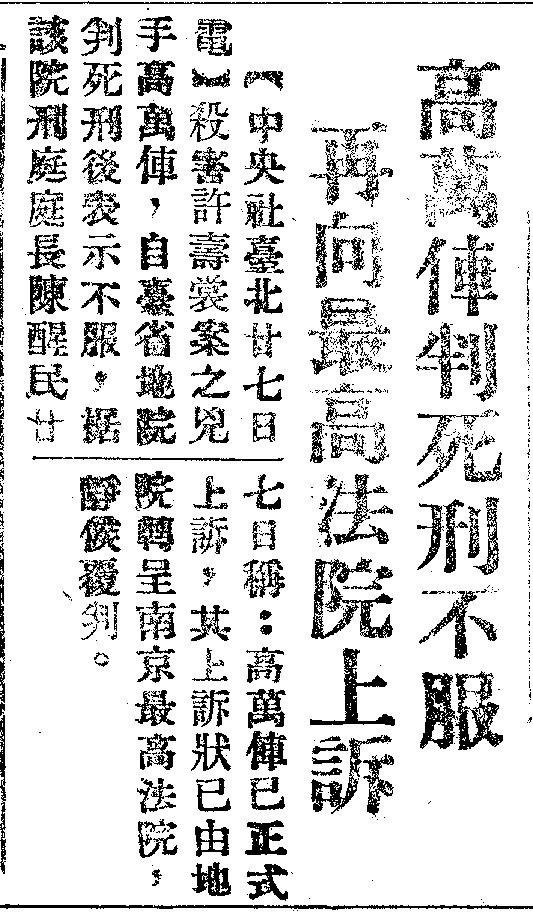 高萬俥判死刑不服
再向最高法院上訴
【中央社臺北廿七日
電】殺害許壽裳案之兇
手高萬俥，自臺省地院
判死刑後表示不服，据
該院刑庭庭長陳醒民廿
七日稱：高萬俥已正式
上訴，其上訴狀已由地
院轉呈南京最高法院，
靜候覆判。